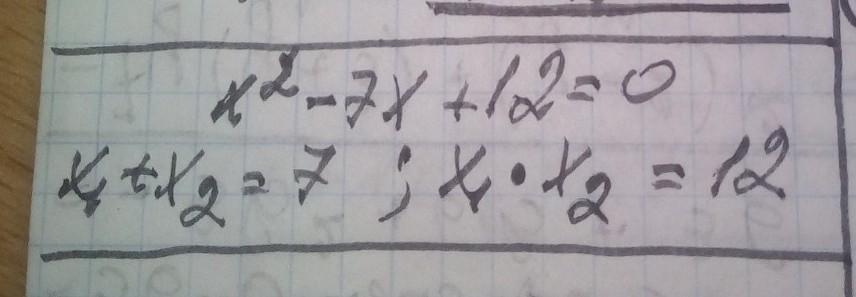 x² - 7x + 12 = 0
x₁ + x₂ = 7 ; x₁ • x₂ = 12